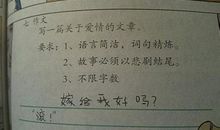 七、作文
写一篇关于爱情的文章。
要求：1、语言简洁，词句精炼。
2、故事必须以悲剧结尾。
3、不限字数
嫁给我好吗？
"滚！"